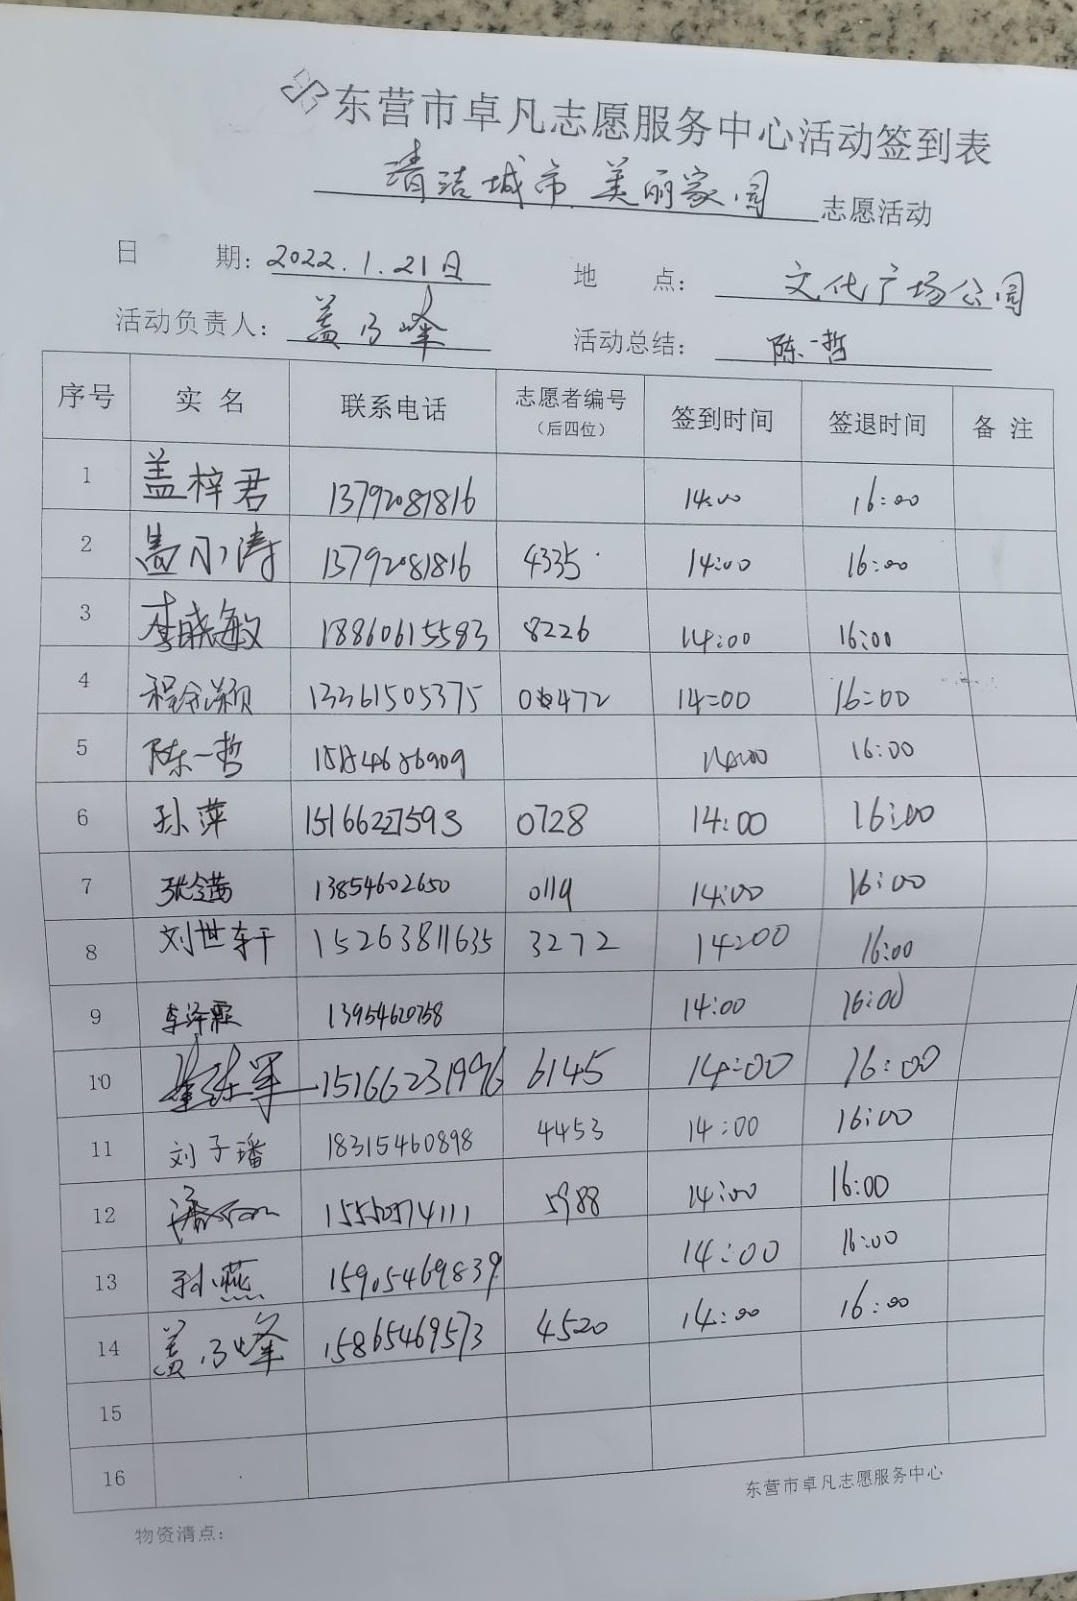 东营市卓凡志愿服务中心活动签到表
清洁城市 美丽家园 志愿活动
日 期: 2022.1.21日 地 点: 文化广场公园
活动负责人: 盖乃峰 活动总结: 陈一哲
序号 实名 联系电话 志愿者编号(后四位) 签到时间 签退时间 备注
1 盖梓君 13792081816 14:00 16:00
2 13792081816 4335 14:00 16:00
3 李晓敏 18860615583 8226 14:00 16:00
4 13361505375 14:00 16:00
5 陈一哲 14:00 16:00
6 孙萍 15166227593 0728 14:00 16:00
7 13854602650 0119 14:00 16:00
8 刘世轩 15263811635 3272 14:00 16:00
9 李泽霖 13954620758 14:00 16:00
10 15166231996 6145 14:00 16:00
11 刘子璠 18315460898 4453 14:00 16:00
12 5988 14:00 16:00
13 孙燕 15905469839 14:00 16:00
14 盖乃峰 15865469573 4520 14:00 16:00
15
16
东营市卓凡志愿服务中心
物资清点: